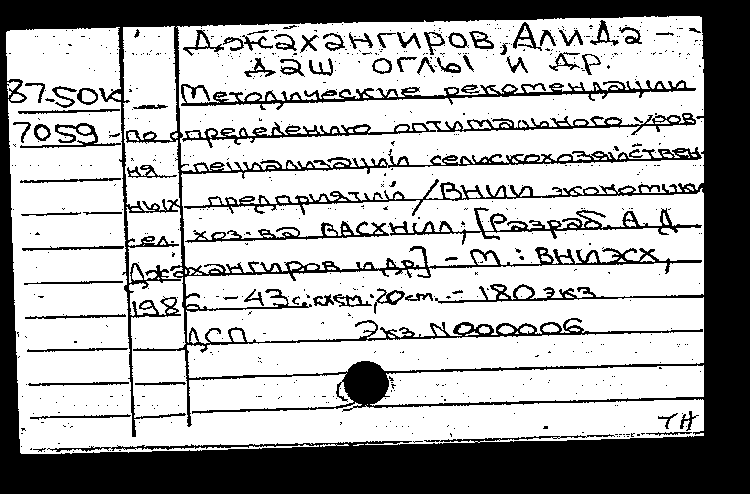 Джахангиров, Али Да-
даш оглы и др.
87-50к Методические рекомендации
7059 - по определению оптимального уров-
ня специализации сельскохозяйствен-
ных предприятий / ВНИИ экономики
сел. хоз-ва ВАСХНИЛ; [Разраб. А. Д
Джахангиров и др.] - М.: ВНИЭСХ,
1986. - 43 с.: схем.; 20 см. - 180 экз
ДСП. Экз. N000006
ТН